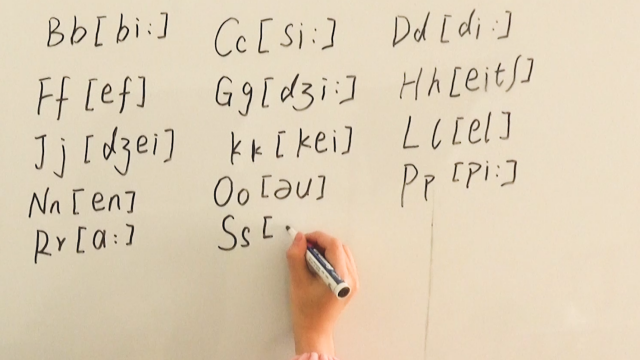 Bb [bi:] Cc [si:] Dd [di:]
Ff [ef] Gg [dʒi:] Hh [eitʃ]
Jj [dʒei] kk [kei] Ll [el]
Nn [en] Oo [əu] Pp [pi:]
Rr [a:] Ss [